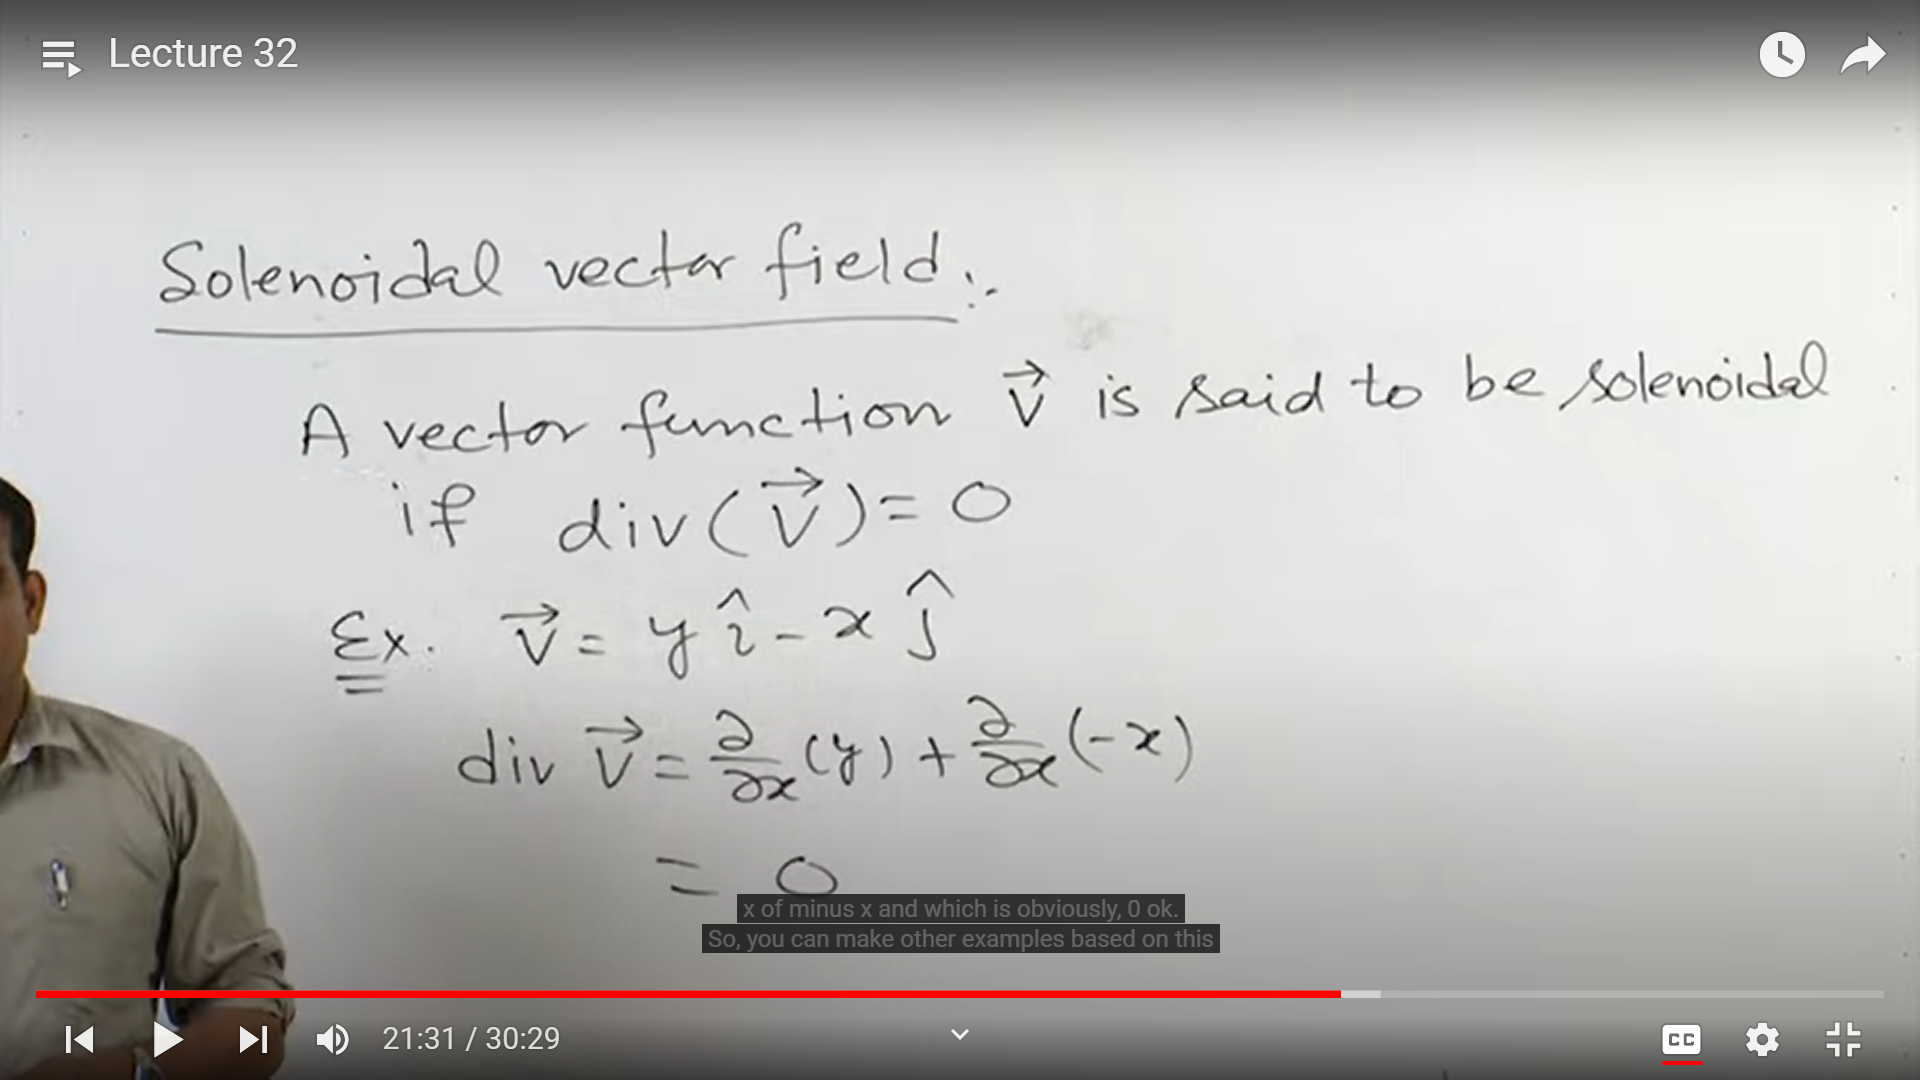 Lecture 32
Solenoidal vector field :-
A vector function \vec{V} is said to be solenoidal
if div(\vec{V}) = 0
Ex. \vec{V} = y \hat{i} - x \hat{j}
div \vec{V} = ∂/∂x (y) + ∂/∂x (-x)
= 0
x of minus x and which is obviously, 0 ok.
So, you can make other examples based on this
21:31 / 30:29
CC